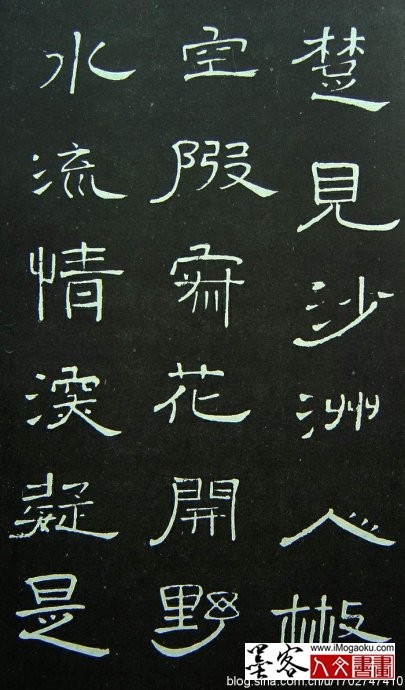 楚見沙洲心
空花開野
水流情深疑是
墨客
www.iMogaoku.com
人文書畫
blog.sina.com.cn/u/1702747410